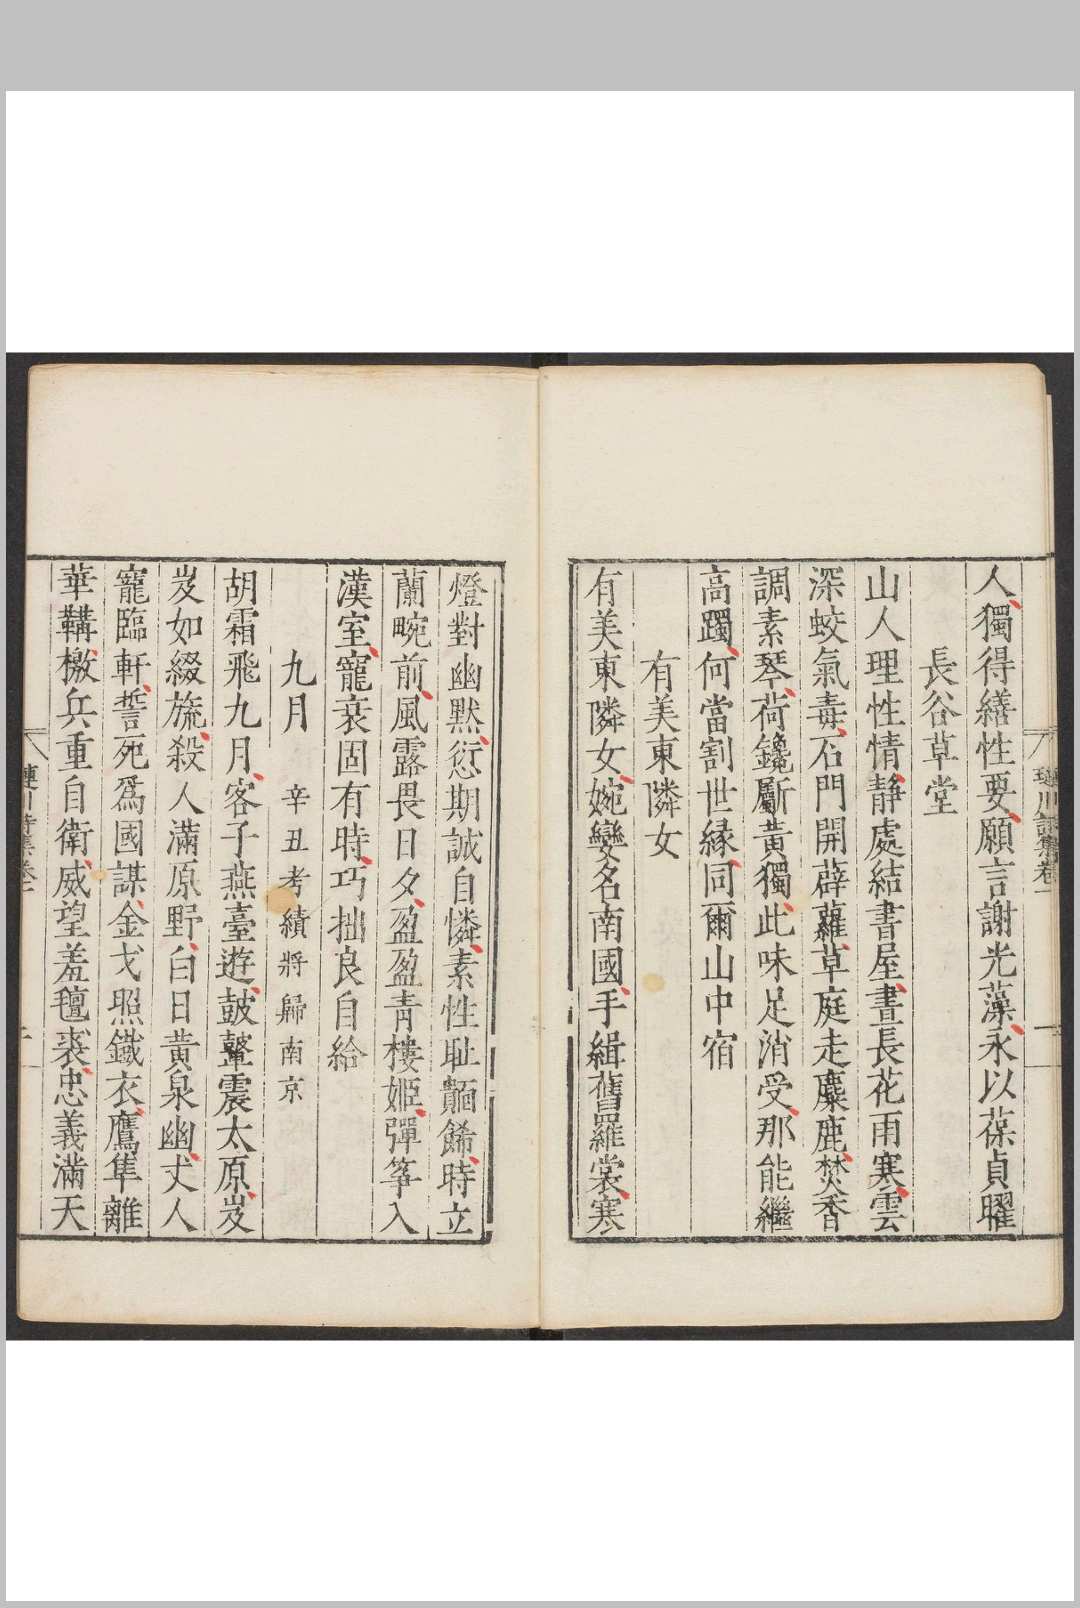 人獨得繕性要願言謝光藻永以葆貞曜
長谷草堂
山人理性情靜處結書屋晝長花雨寒雲
深蛟氣毒石門開薜蘿草庭走麋鹿焚香
調素琴荷鑱斸黃獨此味足消受那能繼
高躅何當割世緣同爾山中宿
有美東隣女
有美東隣女婉孌名南國手緝舊羅裳寒
燈對幽默愆期誠自憐素性恥䩄餙時立
蘭畹前風露畏日夕盈盈青樓姬彈筝入
漢室寵衰固有時巧拙良自給
九月 辛丑考績將歸南京
胡霜飛九月客子燕臺遊鼓鼙震太原岌
岌如綴旒殺人滿原野白日黃泉幽丈人
寵臨軒誓死爲國謀金戈照鐵衣鷹隼離
華鞲檄兵重自衛威望羞氊裘忠義滿天